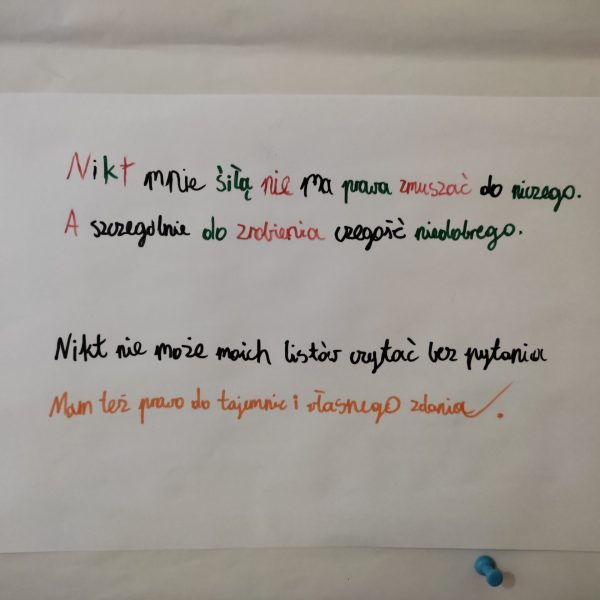 Nikt mnie siłą nie ma prawa zmuszać do niczego.
A szczególnie do zrobienia czegoś niedobrego.
Nikt nie może moich listów czytać bez pytania
Mam też prawo do tajemnic i własnego zdania.